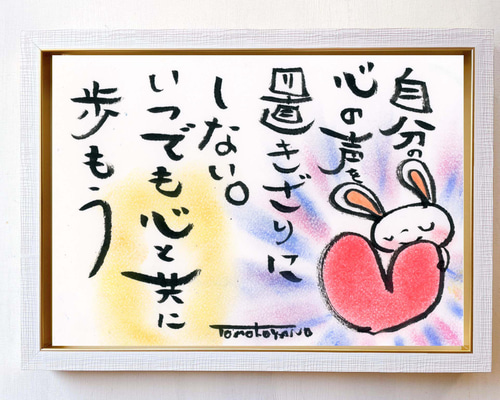 自分の
心の声を
置きざりに
しない。
いつでも心と共に
歩もう